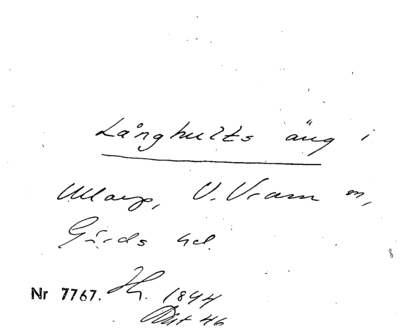 Långhults äng i
Ullarp, V. Vram sn,
Gärds hd.
Nr 7767. 1844
Akt 46